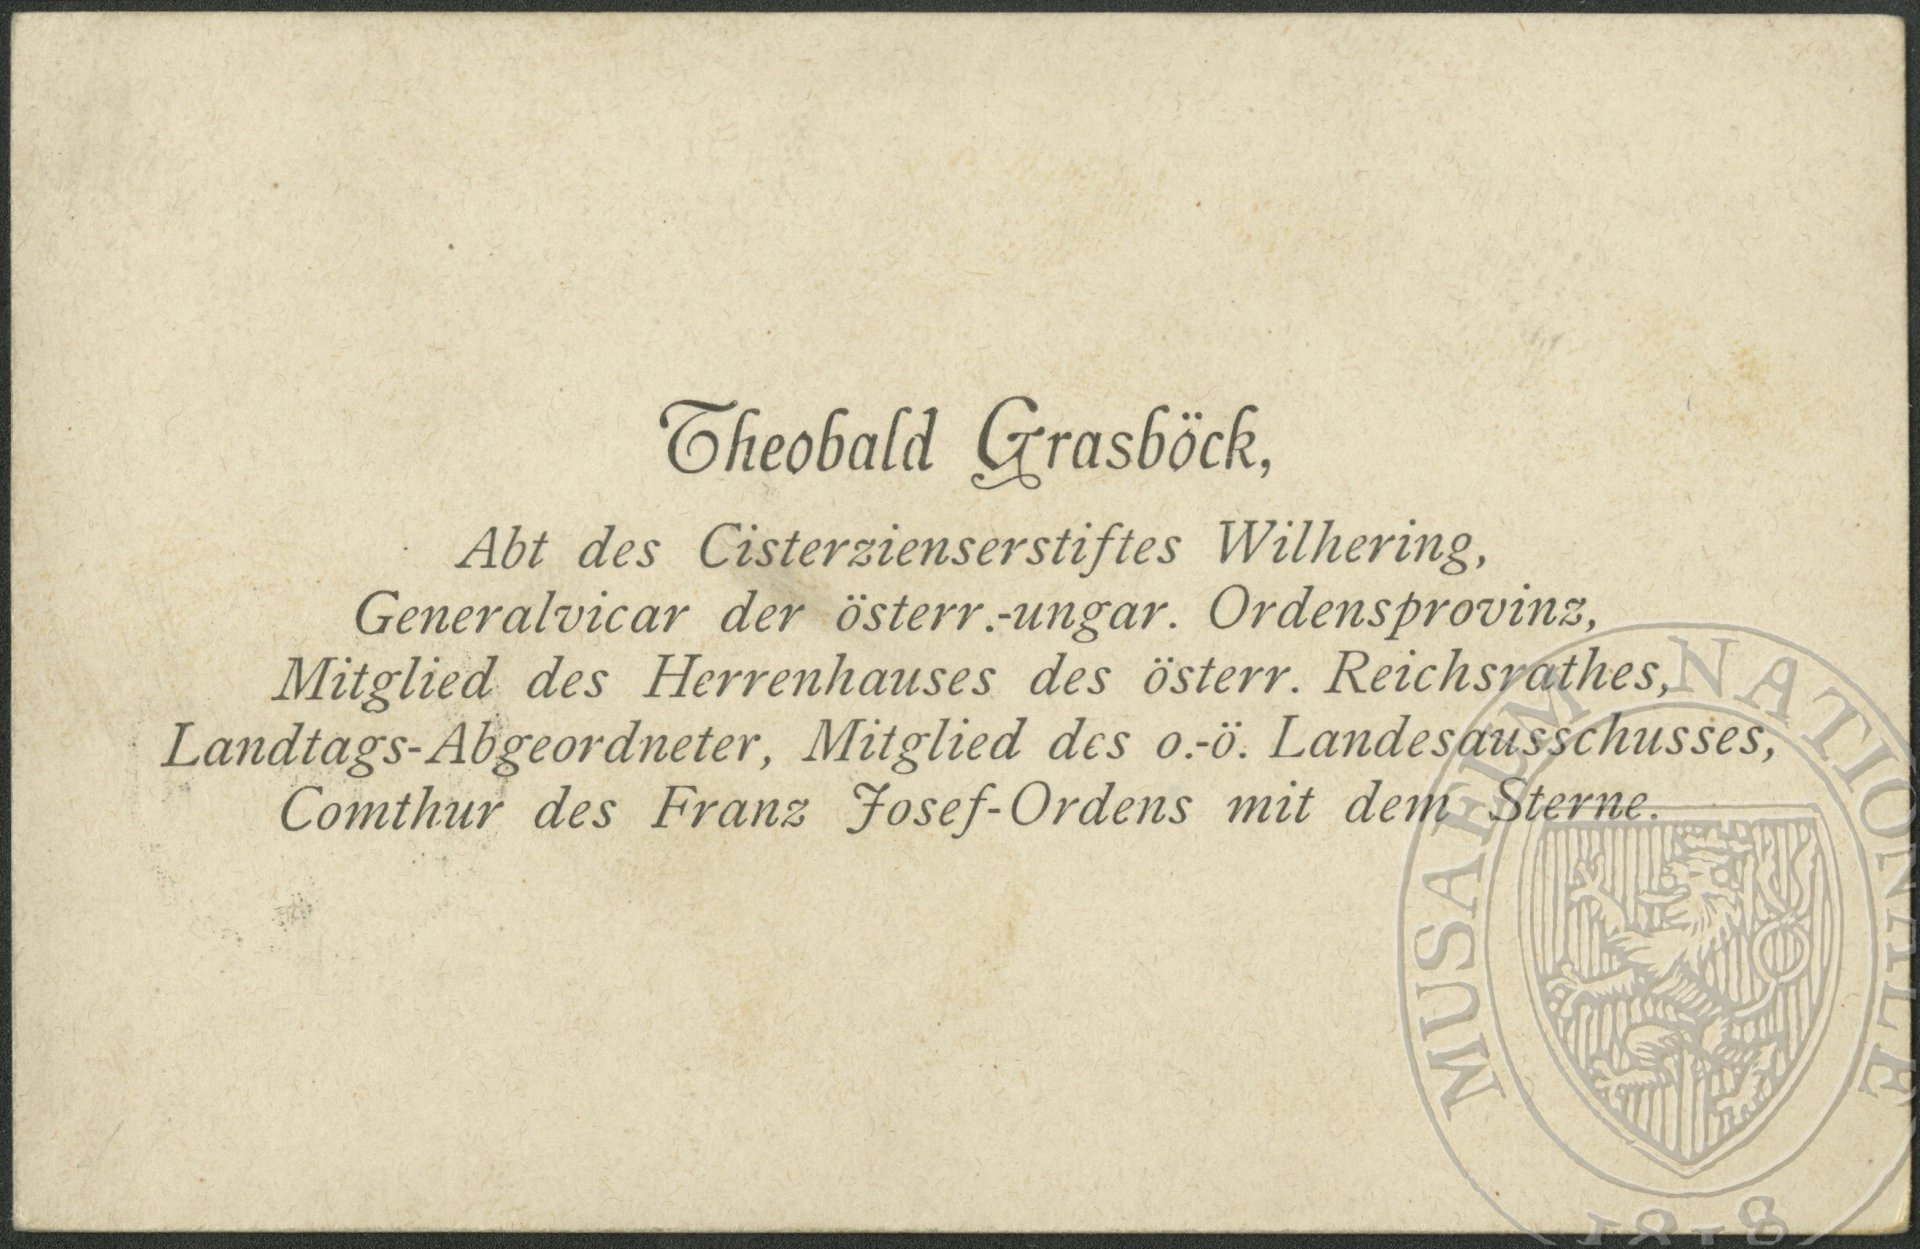 Theobald Grasböck,
Abt des Cisterzienserstiftes Wilhering,
Generalvicar der österr.-ungar. Ordensprovinz,
Mitglied des Herrenhauses des österr. Reichsrathes,
Landtags-Abgeordneter, Mitglied des o.-ö. Landesausschusses,
Comthur des Franz Josef-Ordens mit dem Sterne.
MUSAEUM NATIONALE
1818